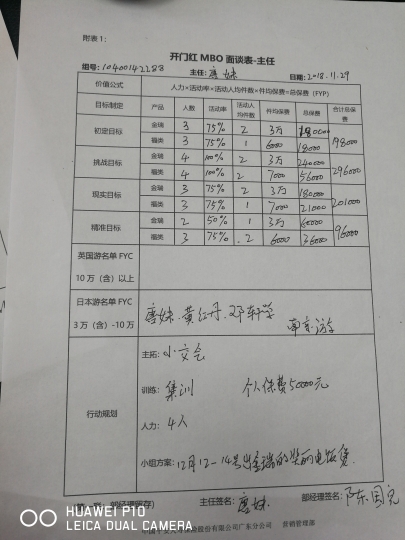 附表1：
开门红 MBO 面谈表-主任
组号：10400142288 主任：唐妹 日期：2018.11.29
价值公式 人力×活动率×活动人均件数×件均保费=总保费（FYP）
目标制定 产品 人数 活动率 活动人均件数 件均保费 总保费 合计总保费
初定目标 金瑞 3 75% 2 3万 180000 198000
福类 3 75% 1 6000 18000
挑战目标 金瑞 4 100% 2 3万 240000 296000
福类 4 100% 2 7000 56000
现实目标 金瑞 3 75% 2 3万 180000 201000
福类 3 75% 1 7000 21000
精准目标 金瑞 2 50% 1 3万 60000 96000
福类 3 75% 2 6000 36000
英国游名单 FYC
10 万（含）以上
日本游名单 FYC
3 万（含）-10 万
唐妹 黄红丹 邓轩学 南京游
行动规划
主拓：小交会
训练：集训 个人保费50000元
人力：4人
小组方案：12月12-14号出金瑞的奖
主任签名：唐妹 部经理签名：
股份有限公司广东分公司 营销管理部
HUAWEI P10
LEICA DUAL CAMERA